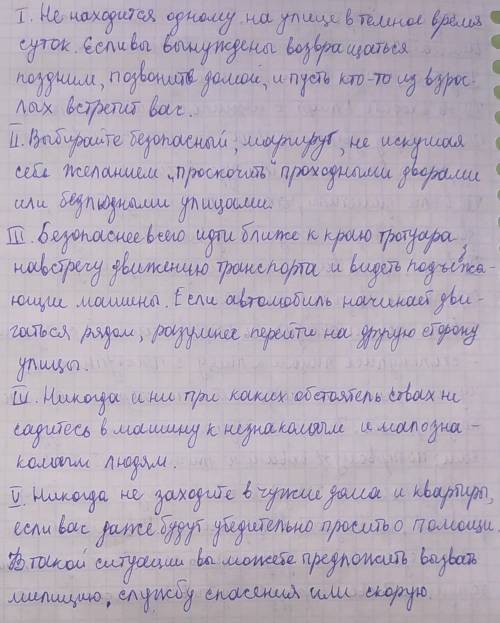 I. Не находится одному на улице в тёмное время
суток. Если вы вынуждены возвращаться
поздним, позвоните домой, и пусть кто-то из взрос-
лых встретит вас.
II. Выбирайте безопасный, маршрут, не искушая
себя желанием „проскочить" проходными дворами
или безлюдными улицами.
III. Безопаснее всего идти ближе к краю тротуара,
навстречу движению транспорта и видеть подъезжа-
ющие машины. Если автомобиль начинает дви-
гаться рядом, разумнее перейти на другую сторону
улицы.
IIII. Никогда и ни при каких обстоятельствах не
садитесь в машину к незнакомым и малозна-
комым людям.
V. Никогда не заходите в чужие дома и квартиры,
если вас даже будут убедительно просить о помощи.
В такой ситуации вы можете предложить вызвать
милицию, службу спасения или скорую.